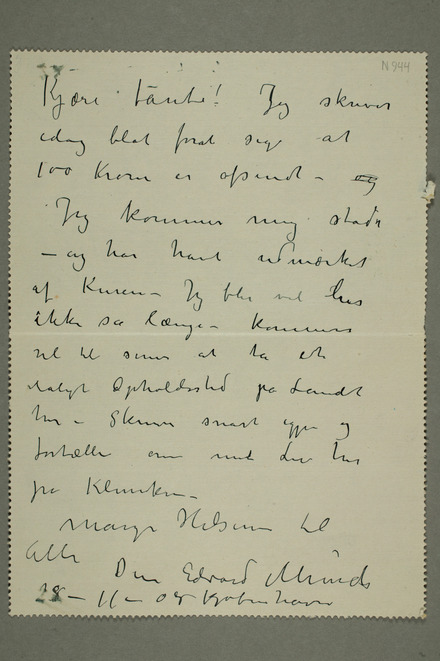 N 944
Kjære tante! Jeg skriver
idag blot forat sige at
100 Kroner er afsendt – og
Jeg kommer mig stadig
– og har havt udmærket
af Kuren – Jeg blir vel hus
ikke så længe – kommer
vel til senere at ta et
roligt Opholdssted på Landet
her – Skriver snart igjen og
fortæller om mit Liv her
på Kliniken –
Mange Hilsener til
Alle
Din Edvard Munch
28 – 11 – 08 Kjøbenhavn